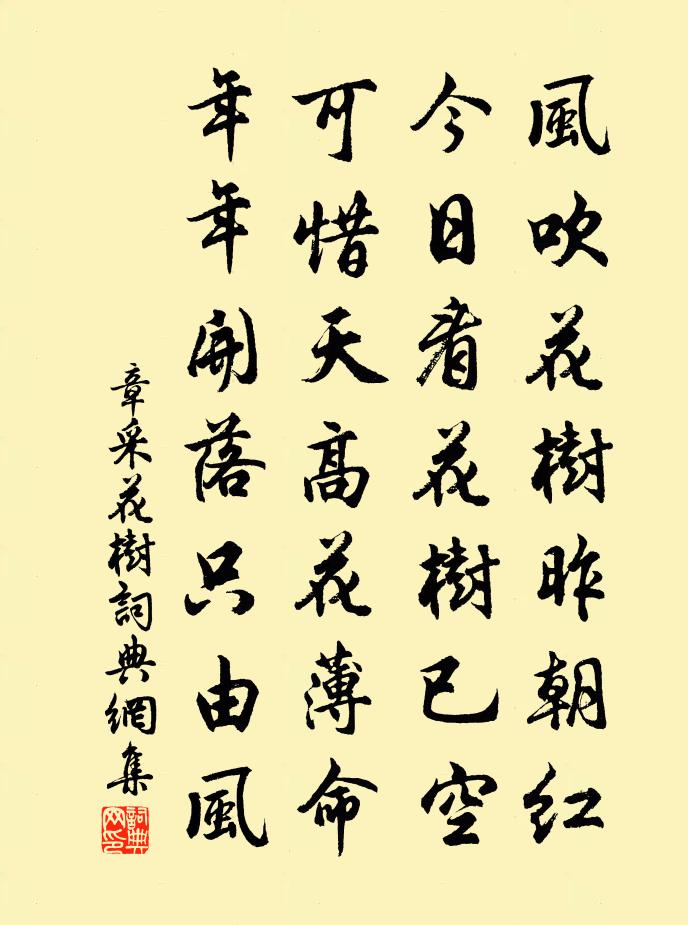 風吹花樹昨朝紅
今日看花樹已空
可惜天高花薄命
年年開落只由風
章采花樹詞典網集
詞典網印